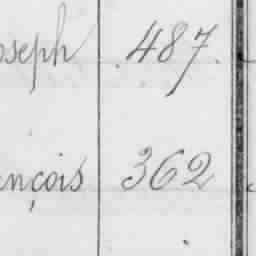 oseph 487.
ançois 362